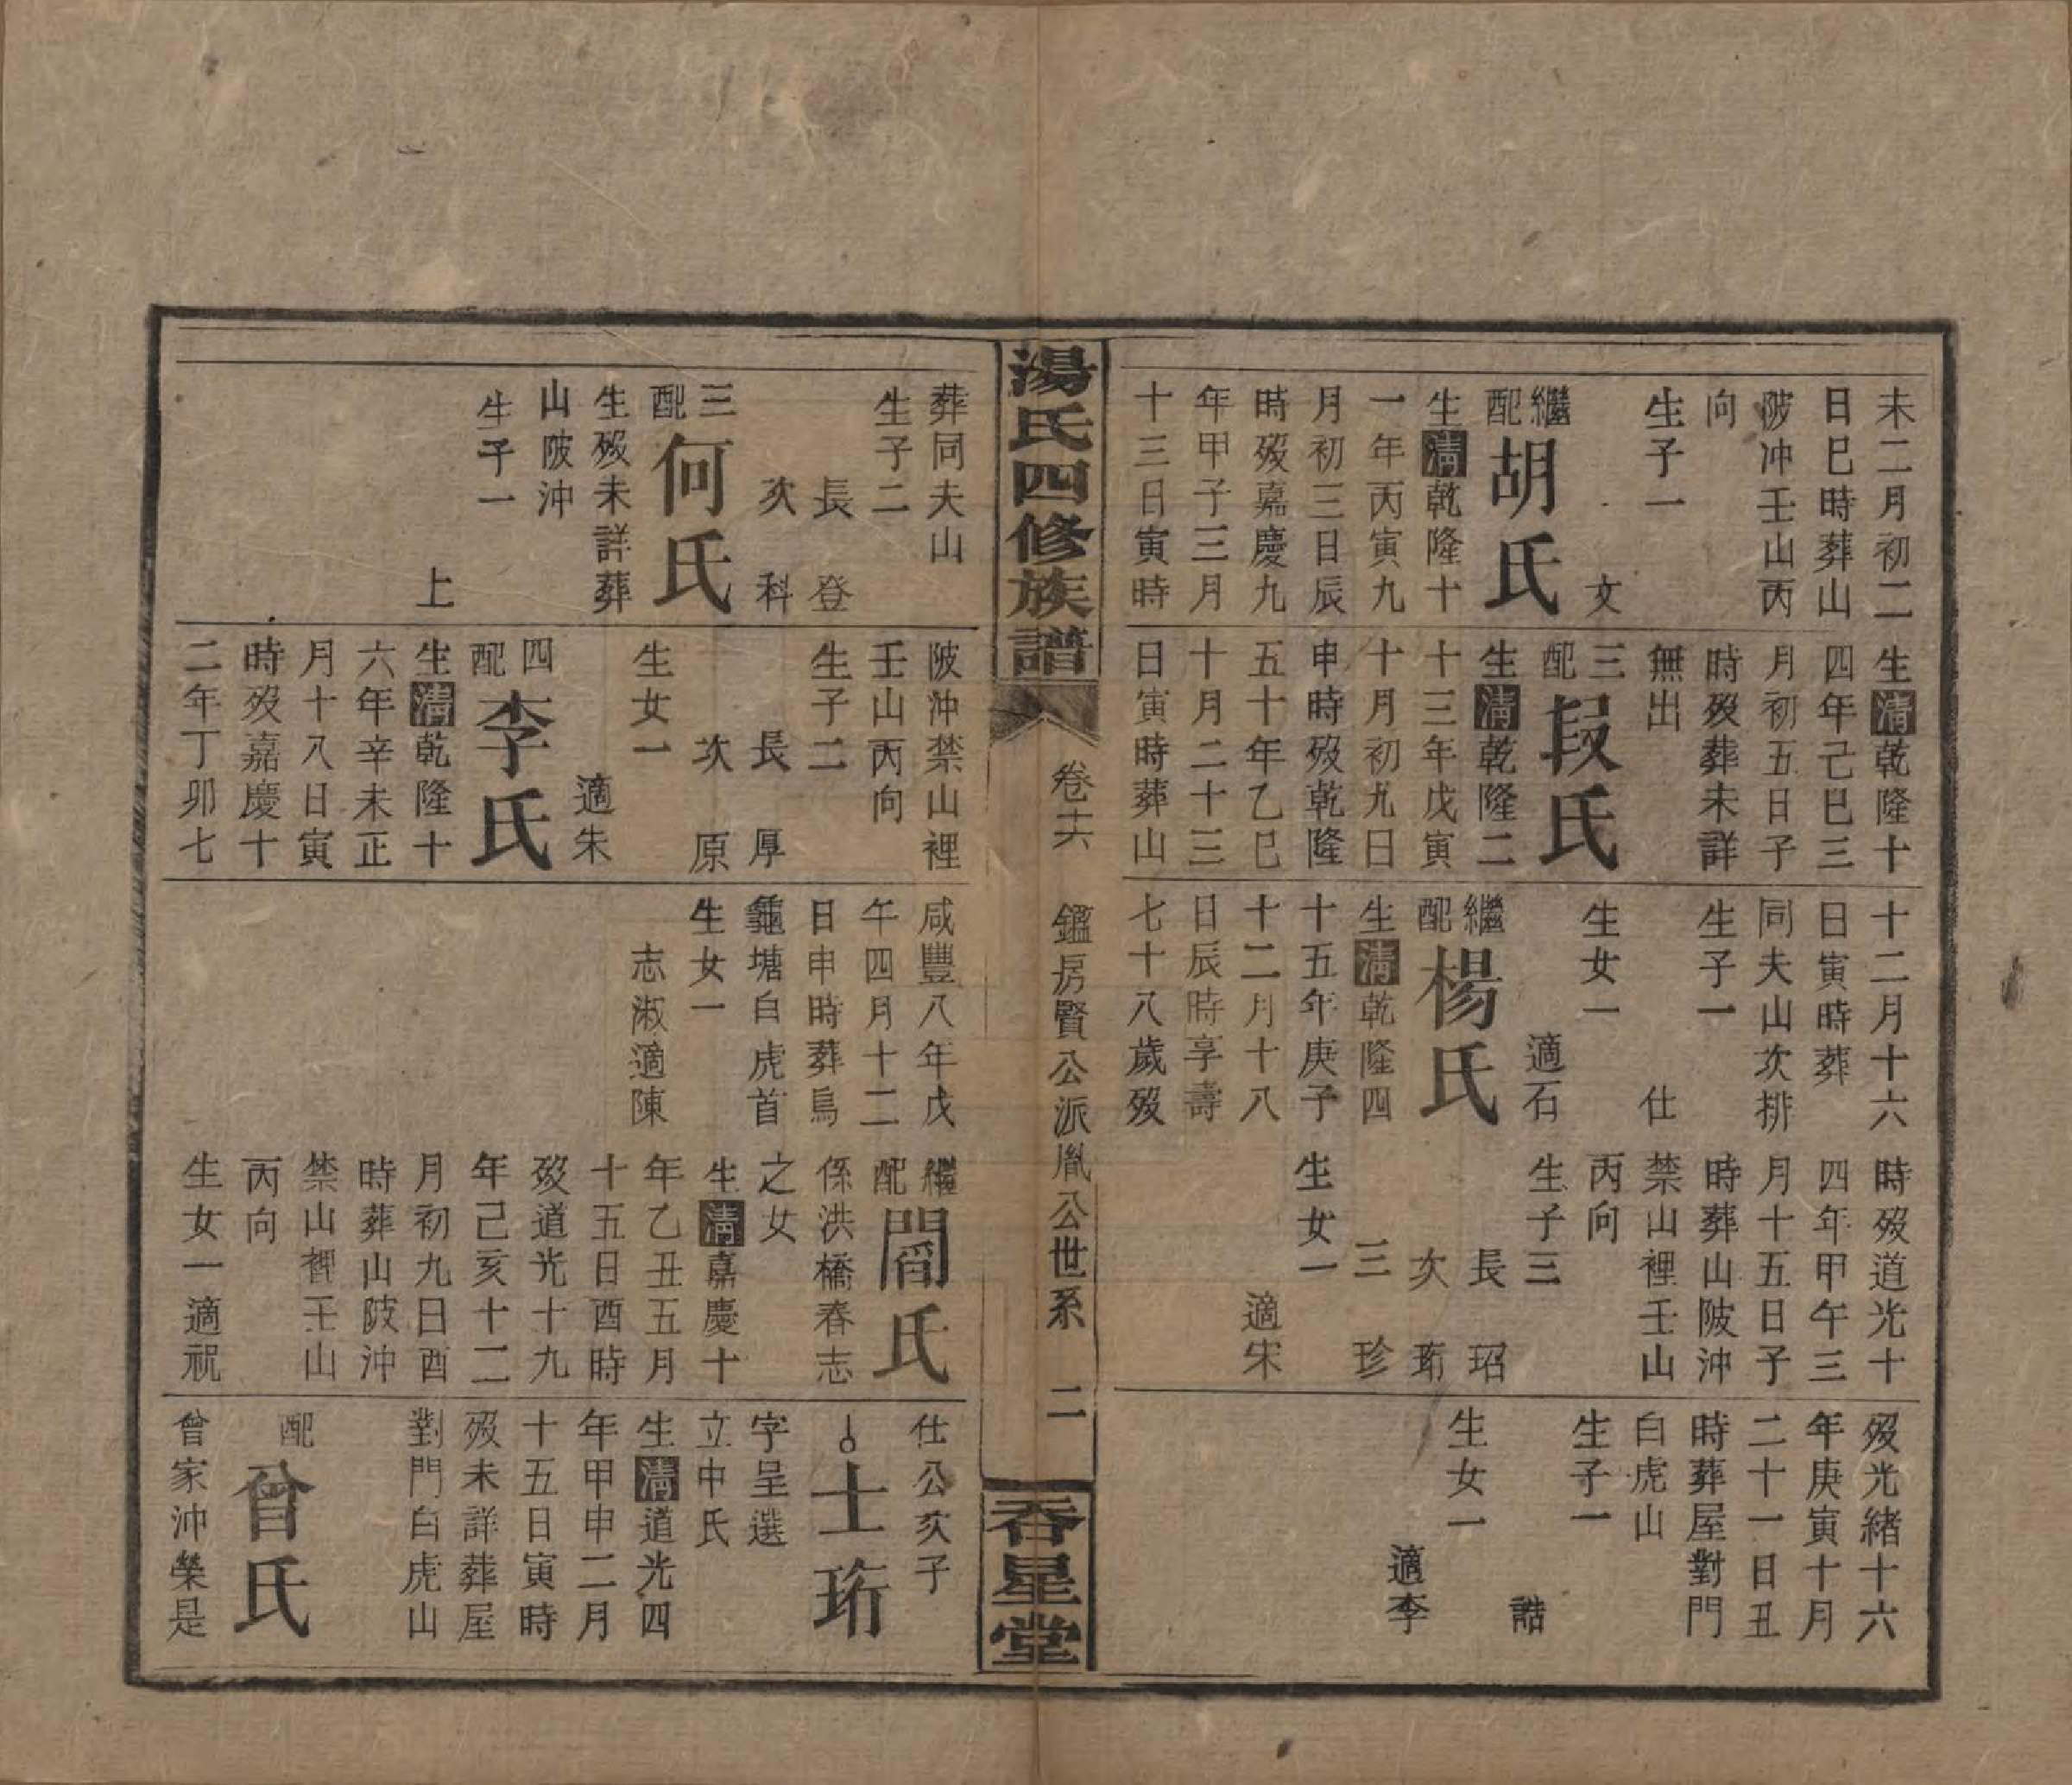 未二月初二
日巳時葬山
陂冲壬山丙
向
生子一
文
繼配胡氏
生清乾隆十
一年丙寅九
月初三日辰
時歿嘉慶九
年甲子三月
十三日寅時
生清乾隆十
四年己巳三
月初五日子
時歿葬未詳
無出
三配段氏
生清乾隆二
十三年戊寅
十月初九日
申時歿乾隆
五十年乙巳
十月二十三
日寅時葬山
十二月十六
日寅時葬
同夫山次排
生子一
仕
生女一
適石
繼配楊氏
生清乾隆四
十五年庚子
十二月十八
日辰時享壽
七十八歲歿
時歿道光十
四年甲午三
月十五日子
時葬山陂沖
禁山裡壬山
丙向
生子三
長 玿
次 珩
三 珍
生女一
適宋
歿光緒十六
年庚寅十月
二十一日丑
時葬屋對門
白虎山
生子一
誥
生女一
適李
湯氏四修族譜
卷十六 鑑房賢公派胤公世系 二
吞星堂
葬同夫山
生子二
長 登
次 科
三配何氏
生歿未詳葬
山陂沖
生子一
上
陂沖禁山裡
壬山丙向
生子二
長 厚
次 原
生女一
適朱
四配李氏
生清乾隆十
六年辛未正
月十八日寅
時歿嘉慶十
二年丁卯七
咸豐八年戊
午四月十二
日申時葬烏
龜塘白虎首
生女一
志淑適陳
繼配閻氏
係洪橋春志
之女
生清嘉慶十
年乙丑五月
十五日酉時
歿道光十九
年己亥十二
月初九日酉
時葬山陂沖
禁山裡壬山
丙向
生女一適祝
仕公次子
士珩
字呈選
立中氏
生清道光四
年甲申二月
十五日寅時
歿未詳葬屋
對門白虎山
配曾氏
曾家沖榮是